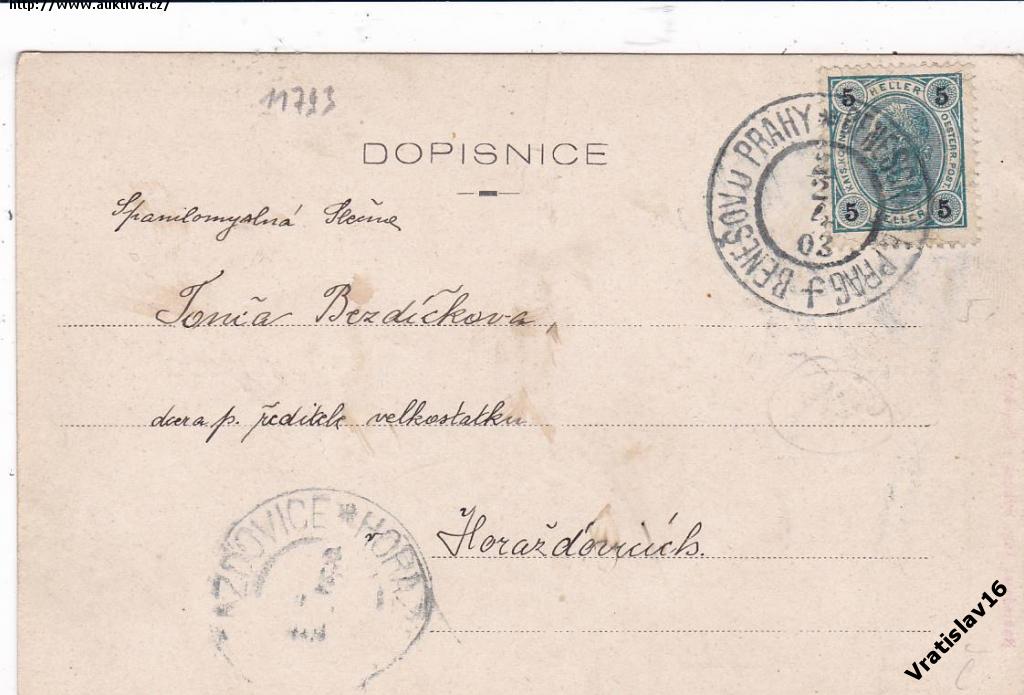 http://www.auktiva.cz/
11793
DOPISNICE
5 HELLER 5
OESTERR. POST.
5 HELLER 5
BENEŠOV U PRAHY * BENESCHAU PRAG
03
Spanilomyslná Slečna
Tonča Bezdíčkova,
dcera p. ředitele velkostatku
v Horažďovicích.
HORAŽĎOVICE * HORAŽ
Vratislav16